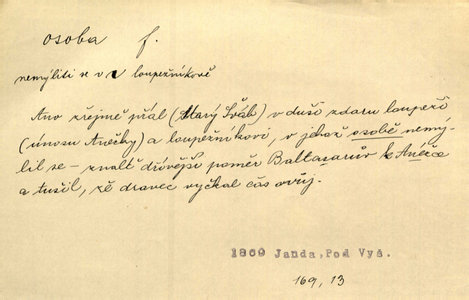 osoba f.
nemýliti se v v loupežníkově
Ano zřejmě přál (Starý Šváb) v duši zdaru loupeži
(únosu Anežky) a loupežníkovi, v jehož osobě nemý-
lil se – znaltě dřívější poměr Baltasarův k Anežce
a tušil, že dravec vyčkal čas svůj.
1869 Janda, Pod Vyš.
169, 13